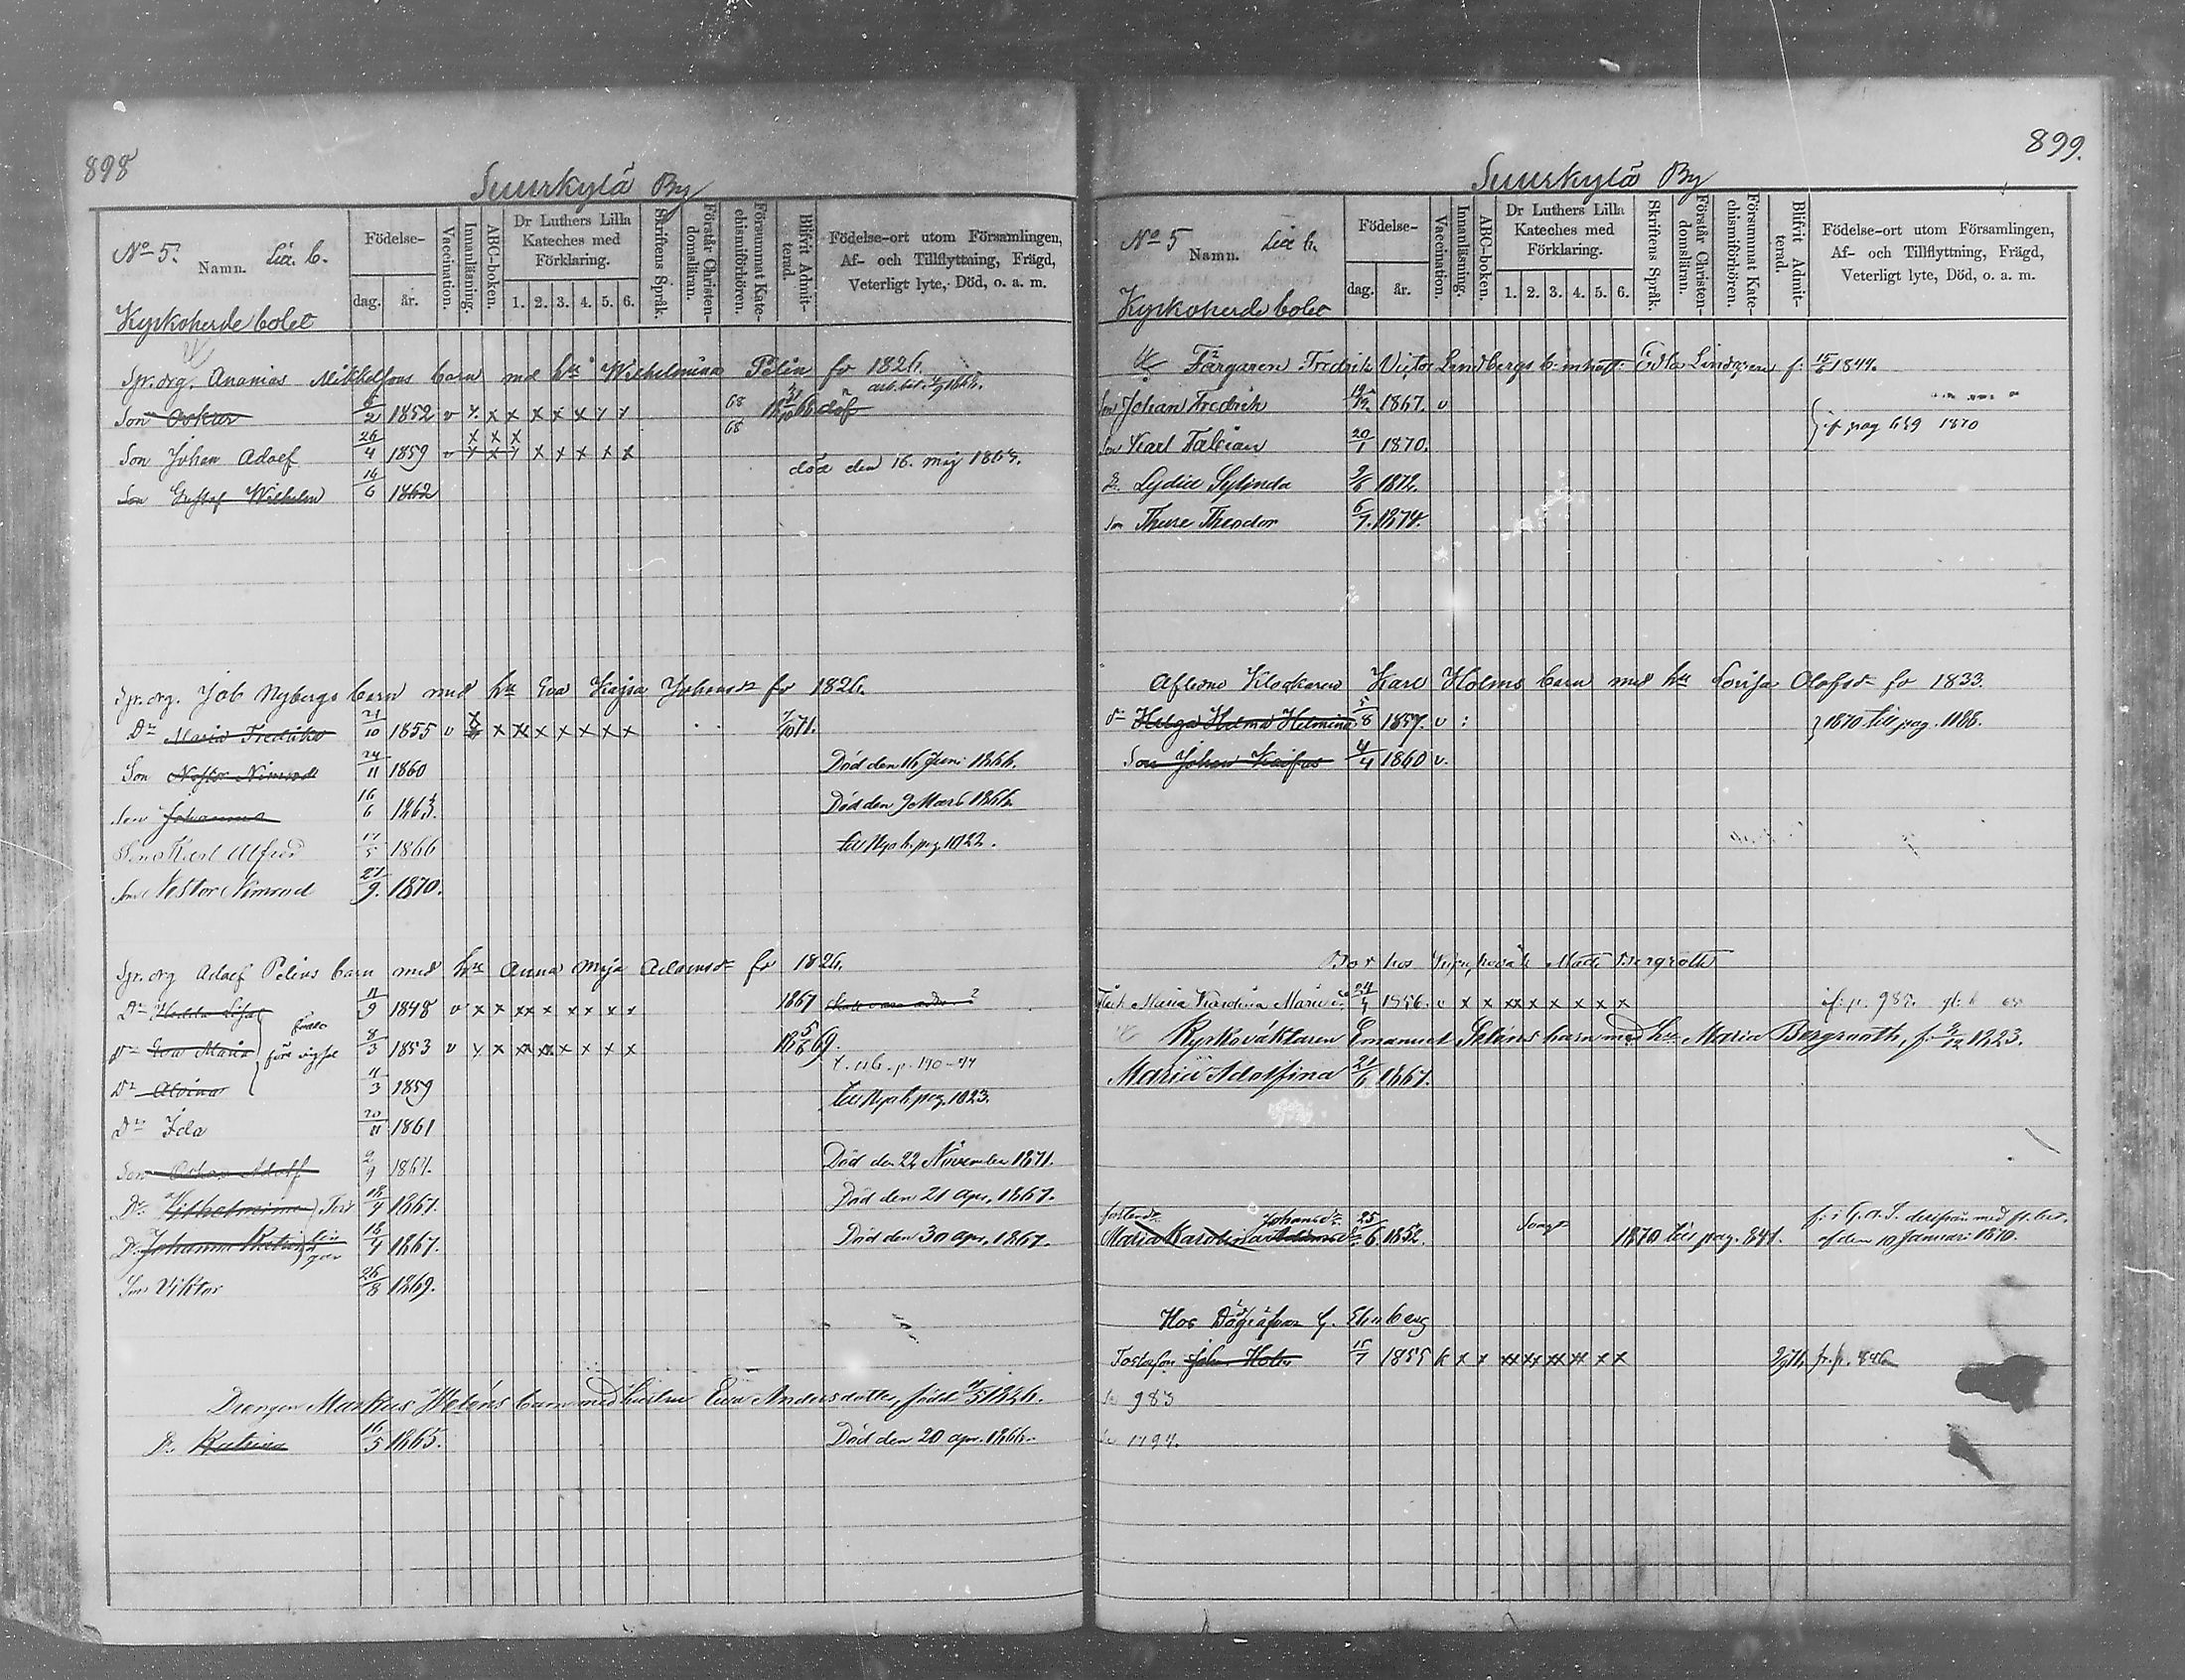 898
Suurkylä By
No 5. Namn. Lit. b.
Kyrkoherde bolet
Födelse-
dag. år.
Vaccination.
Innanläsning.
ABC-boken.
Dr Luthers Lilla Kateches med Förklaring.
1. 2. 3. 4. 5. 6.
Skriftens Språk.
Förstår Christendomsläran.
Försummat Katechismiförhören.
Blifvit Admitterad.
Födelse-ort utom Församlingen,
Af- och Tillflyttning, Frägd,
Veterligt lyte, Död, o. a. m.
Spr. org. Ananias Mikkelsons barn med hu Wilhelmina Pelin fö 1826.
Son Oskar 6/2 1852 v x x x x x x x x 68
Son Johan Adolf 26/4 1859 v x x x x x x x x 68
Son Gustaf Wilhelm 16/6 1862 död den 16. maj 1868.
Spr. org. Job Nybergs barn med hu Eva Kajsa Johansdr fö 1826.
Dr Maria Fredrika 21/10 1855 v x x x x x x x x
Son Nestor Nimrod 24/11 1860 Död den 16 Juni 1866.
Johanna 16/6 1863. Död den 9 Mars 1866.
Son Karl Alfred 17/5 1866 till Nya b. pag 1022.
Son Nestor Nimrod 21/9. 1870.
Spr. org Adolf Pelins barn med hu Anna Maja Adamsdr fö 1826.
Dr Hedda Lisa 11/9 1848 v x x x x x x x x 1867
Dr Eva Maria 8/3 1853 v x x x x x x x x
före vigsel
Dr Alvina 11/3 1859
Dr Ida 20/11 1861 till Nya b. pag. 1023.
Son Oskar Adolf 2/9 1864. Död den 22 November 1871.
Dr Vilhelmina 18/4 1867. Död den 21 apr. 1867.
Dr Johanna 18/4 1867. Död den 30 apr. 1867.
Son Viktor 26/8 1869.
Drengen Markus Heléns barn med hustru Eva Andersdotter, född 1826.
Dr. Katrina 16/5 1865. Död den 20 apr. 1866.
899.
Suurkylä By
No 5 Namn. Lit b.
Kyrkoherde bolet
Födelse-
dag. år.
Vaccination.
Innanläsning.
ABC-boken.
Dr Luthers Lilla Kateches med Förklaring.
1. 2. 3. 4. 5. 6.
Skriftens Språk.
Förstår Christendomsläran.
Försummat Katechismiförhören.
Blifvit Admitterad.
Födelse-ort utom Församlingen,
Af- och Tillflyttning, Frägd,
Veterligt lyte, Död, o. a. m.
Färgaren Fredrik Victor Lindbergs b. m hust: Edla Lindqren f: 15/6 1844.
Son Johan Fredrik 1867. v
Son Karl Fabian 20/1 1870. if pag 639 1870
Dr. Lydia Sylinda 9/6 1872.
Son Thure Theodor 6/7. 1874.
Aflidne Klockaren Karl Holms barn med hu Lovisa Olofsdr fö 1833.
Dr Helga Helma Helmina 5/8 1857. v 1870 till pag. 1188.
Son Johan Kaifas 4/4 1860 v.
Bor hos Matts Bergroth
Maria Karolina 24/4 1856. v x x x x x x x x
Kyrkoväktaren Emanuel barn med hu Maria Bergroth, f. 9/12 1823.
Maria Adolfina 21/6 1867.
Maria Karolina Johansdr 25/6. 1852. 1870 till pag. 841. af den 10 Januari 1870.
Hos G. Elmberg
Fosterson John Holm 15/7 1855 x x x x x x x x fr. p. 846
983
1797.